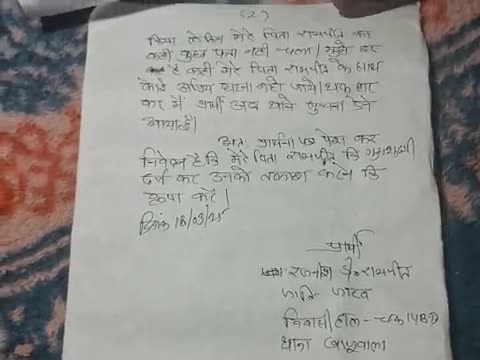 (2)
किया लेकिन मेरे पिता रामजीत का
कही कुछ पता नही चला। मुझे डर
है कही मेरे पिता रामजीत के साथ
कोई अप्रिय घटना नही हो जाये। थक हार
कर मैं प्रार्थी आज थाने सुचना देने
आया है।
अतः प्रार्थना पत्र पेश कर
निवेदन है कि मेरे पिता रामजीत कि गुमशुदगी
दर्ज कर उनको तलाश करने कि
कृपा करे।
दिनांक 18/03/25
प्रार्थी
रामजीत
जाति
निवासी हाल - चक 14BD
थाना